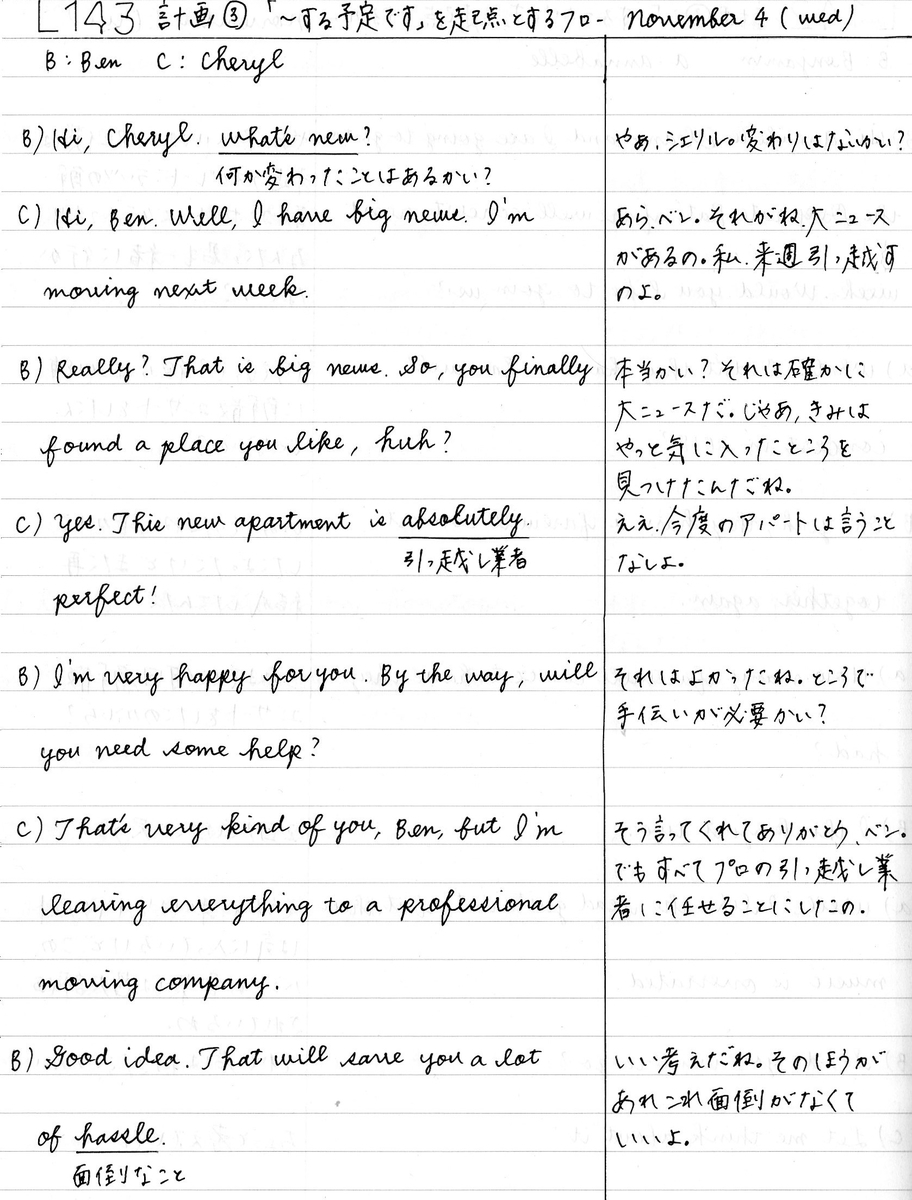 L143 計画③「~する予定です」を起点とするフロー November 4 (wed)
B: Ben C: Cheryl
B) Hi, Cheryl. what's new? やあ、シェリル。変わりはないかい?
何か変わったことはあるかい?
C) Hi, Ben. Well, I have big news. I'm あら、ベン。それがね、大ニュース
があるの。私、来週引っ越す
moving next week. のよ。
B) Really? That is big news. So, you finally 本当かい?それは確かに
大ニュースだ。じゃあ、きみは
found a place you like, huh? やっと気に入ったところを
見つけたんだね。
C) Yes. This new apartment is absolutely ええ、今度のアパートは言うこと
引っ越し業者 なしよ。
perfect!
B) I'm very happy for you. By the way, will それはよかったね。ところで
手伝いが必要かい?
you need some help?
C) That's very kind of you, Ben, but I'm そう言ってくれてありがとう、ベン。
でもすべてプロの引っ越し業
leaving everything to a professional 者に任せることにしたの。
moving company.
B) Good idea. That will save you a lot いい考えだね。そのほうが
あれこれ面倒がなくて
of hassle. いいよ。
面倒なこと